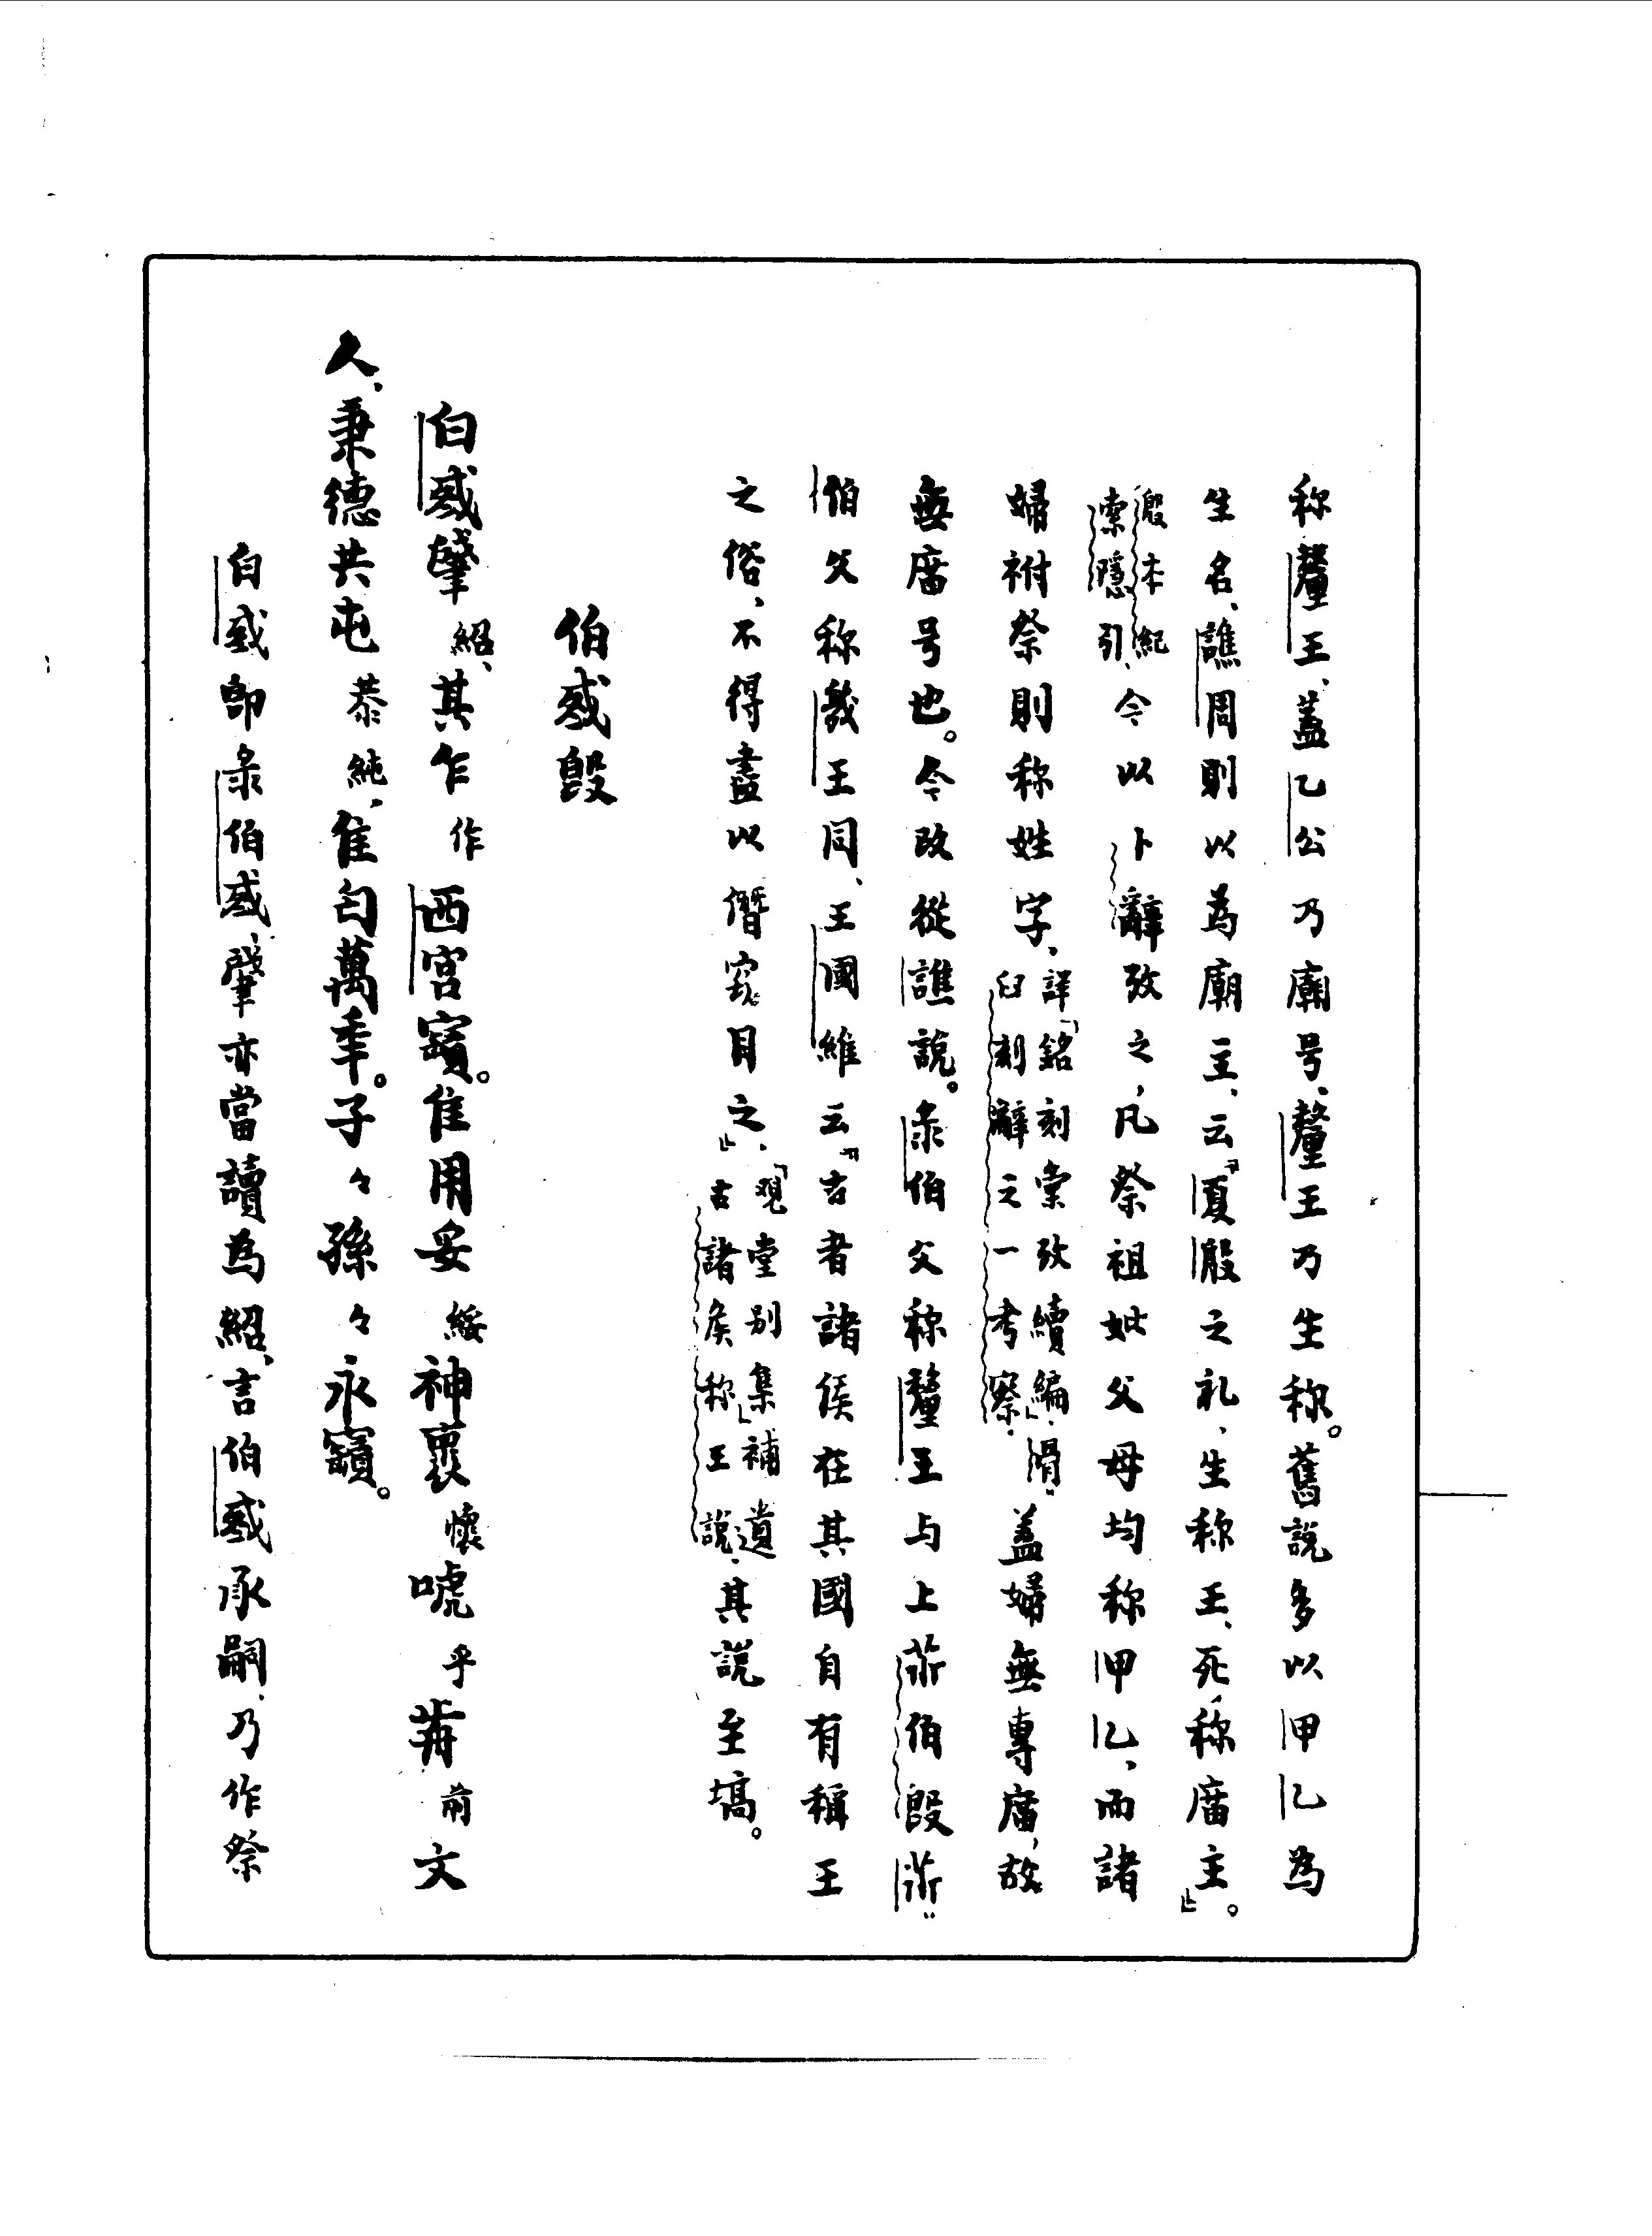 称釐王、蓋乙公乃廟号、釐王乃生称。舊說多以甲乙為
生名、譙周則以為廟主、云『夏殷之礼、生称王、死称庿主』。
殷本紀
索隱引、
今以卜辭攷之，凡祭祖妣父母均称甲乙，而諸
婦祔祭則称姓字、
詳「銘刻彙攷續編」、「骨
臼刻辭之一考察」。
蓋婦無專庿，故
無庿号也。今改從譙說。彔伯父称釐王与上㪿伯𣪘㪿
伯父称幾王同、王國維云『古者諸侯在其國自有稱王
之俗、不得盡以僭竊目之』、
「觀堂別集」補遺
古諸侯称王說、
其說至塙。
伯㦰𣪘
白㦰肇 紹、其乍 作 西宮寶。隹用妥 綏 神褱 懷 唬 乎 歬 前 文
人、秉德共屯 恭純、隹匄萬年。子々孫々永寶。
白㦰即彔伯㦰、肇亦當讀為紹、言伯㦰承嗣、乃作祭